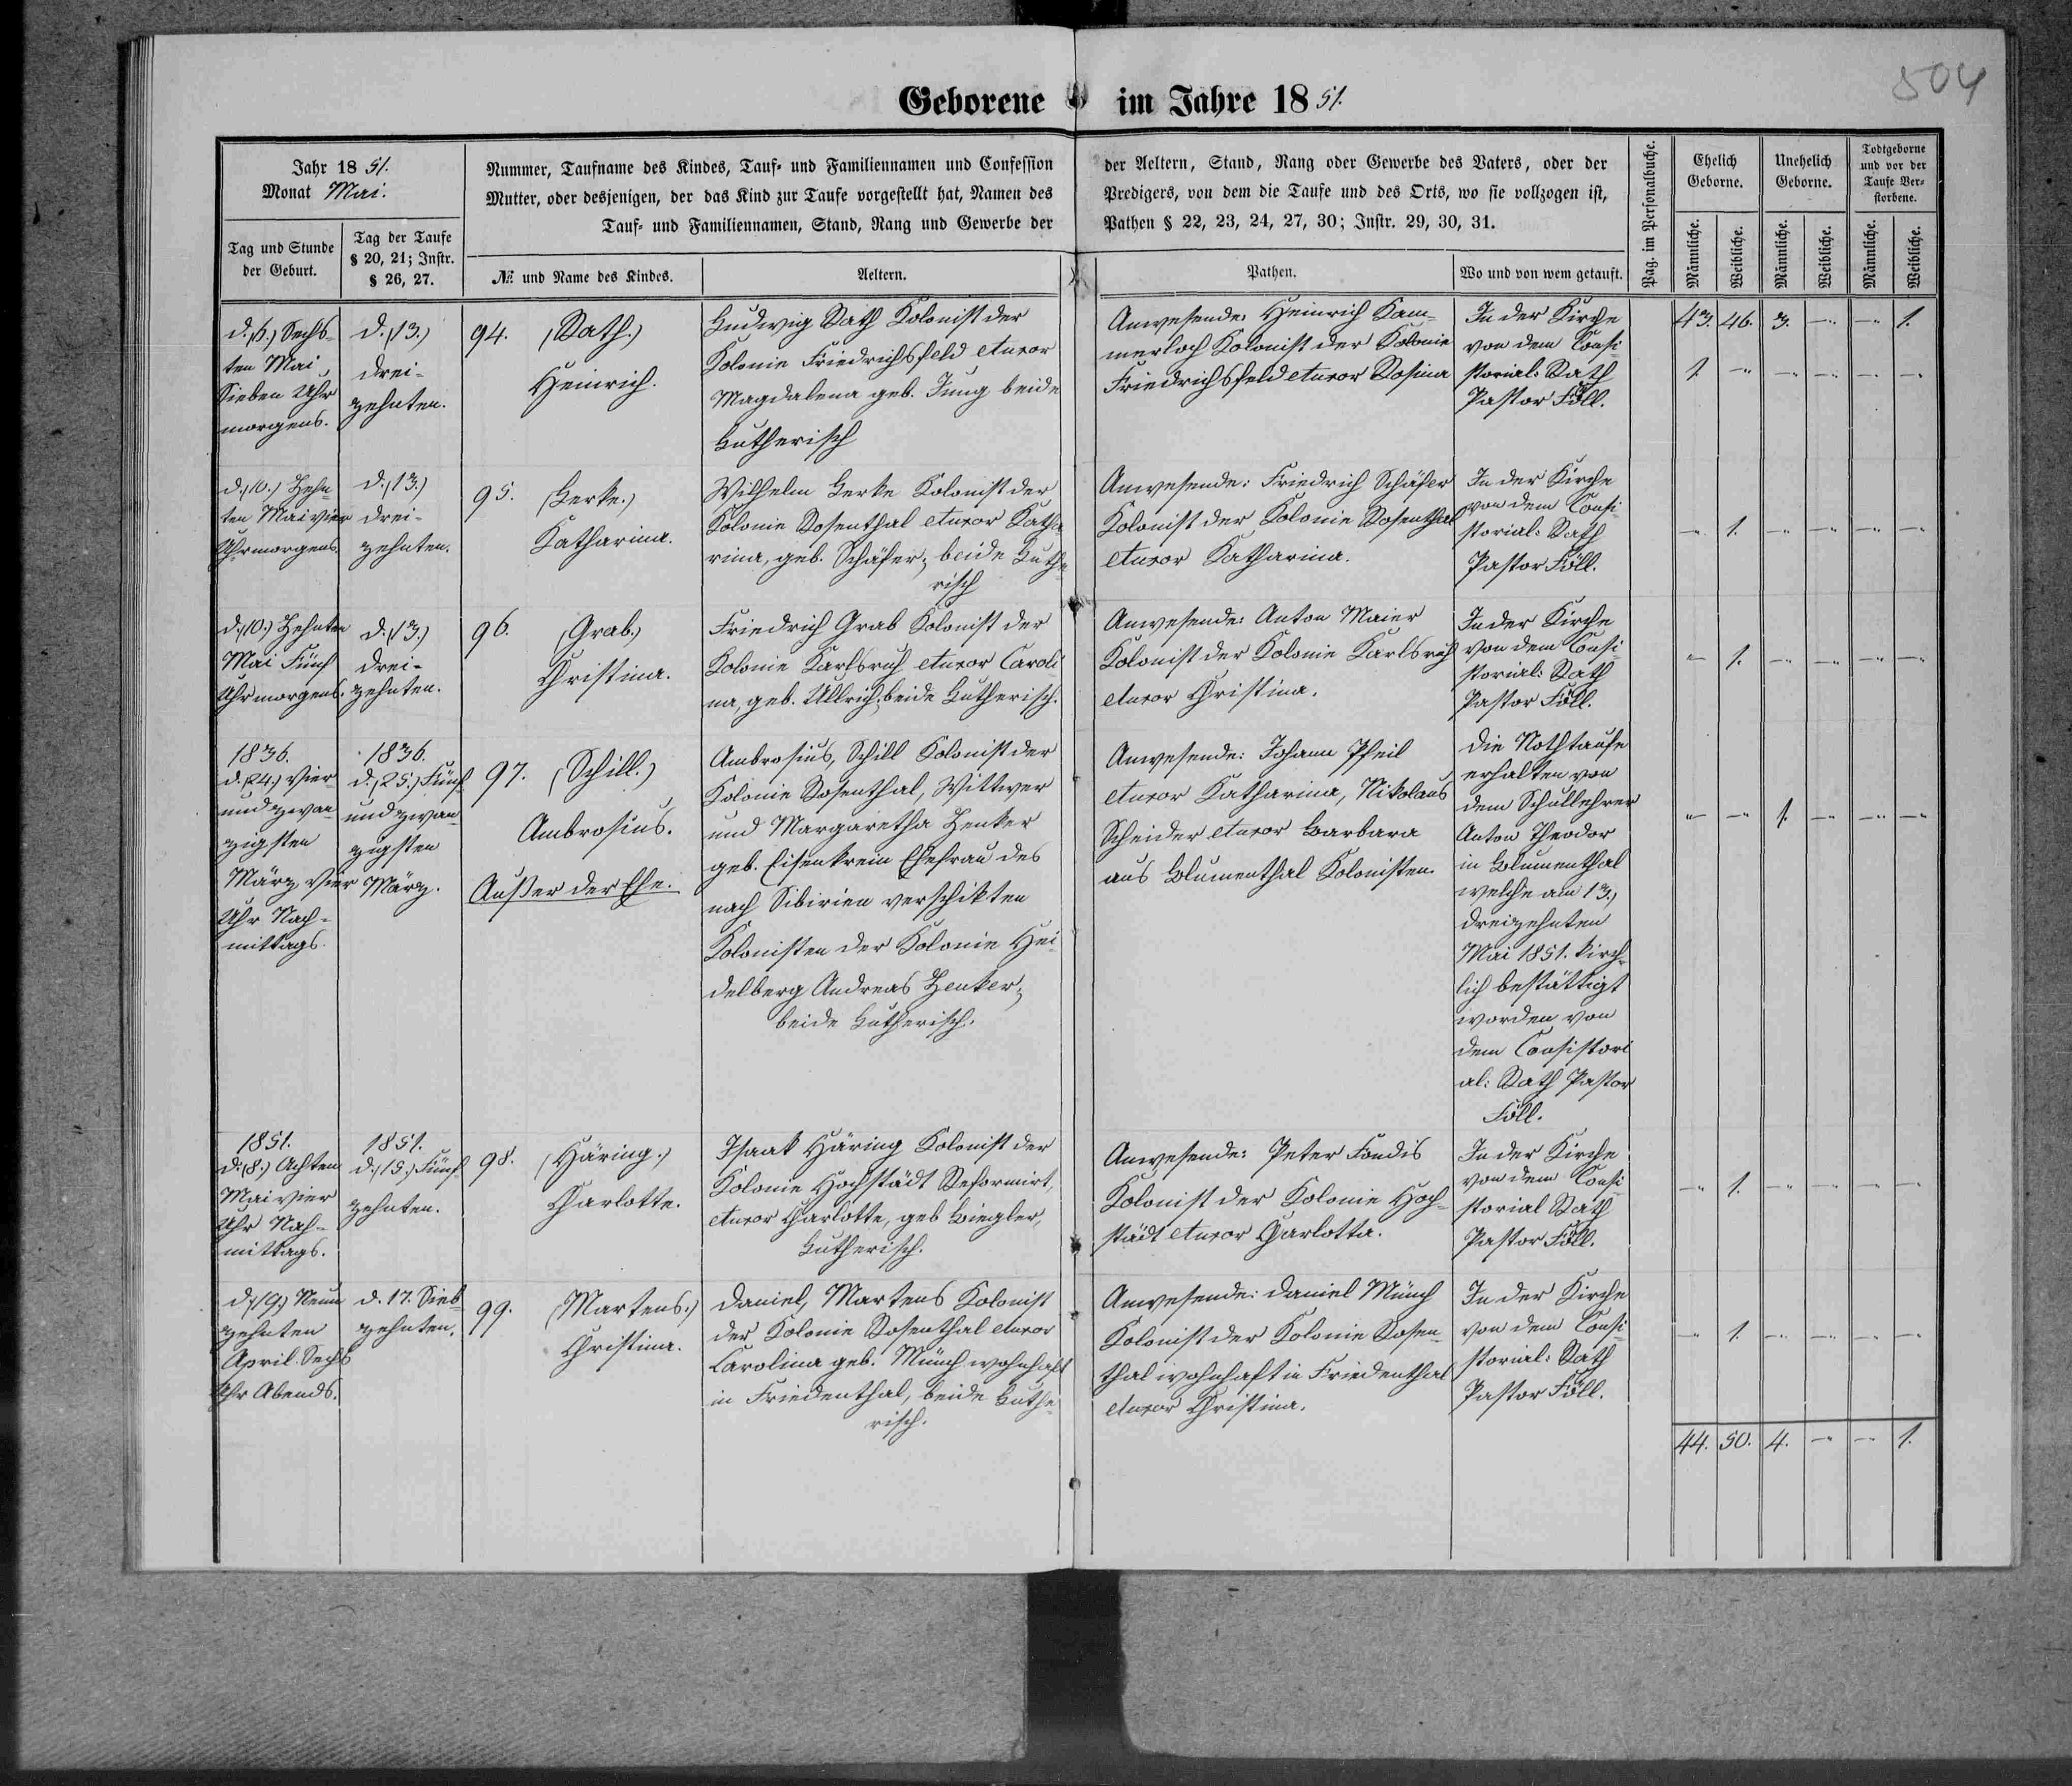 504
Geborene im Jahre 1851.
Jahr 1851.
Monat Mai.
Tag und Stunde
der Geburt.
Tag der Taufe
§ 20, 21; Instr.
§ 26, 27.
Nummer, Taufname des Kindes, Tauf- und Familiennamen und Confession
Mutter, oder desjenigen, der das Kind zur Taufe vorgestellt hat, Namen des
Tauf- und Familiennamen, Stand, Rang und Gewerbe der
№ und Name des Kindes.
Aeltern.
der Aeltern, Stand, Rang oder Gewerbe des Vaters, oder der
Predigers, von dem die Taufe und des Orts, wo sie vollzogen ist,
Pathen § 22, 23, 24, 27, 30; Instr. 29, 30, 31.
Pathen.
Wo und von wem getauft.
Pag. im Personalbuche.
Ehelich
Geborne.
Unehelich
Geborne.
Todtgeborne
und vor der
Taufe Ver-
storbene.
Männliche.
Weibliche.
Männliche.
Weibliche.
Männliche.
Weibliche.
d. (6.) Sechs-
ten Mai
Sieben Uhr
morgens.
d. (13.)
drei-
zehnten.
94. (Rath.)
Heinrich.
Ludwig Rath Kolonist der
Kolonie Friedrichsfeld et uxor
Magdalena geb. Jung beide
Lutherisch
Anwesende: Heinrich Kam-
merloch Kolonist der Kolonie
Friedrichsfeld et uxor Rosina
In der Kirche
von dem Consi-
storial: Rath
Pastor Föll.
43. 46. 3. — — 1.
1. — — — — —
d. (10.) Zehn-
ten Mai vier
Uhr morgens.
d. (13.)
drei-
zehnten.
95. (Gerke.)
Katharina.
Wilhelm Gerke Kolonist der
Kolonie Rosenthal et uxor Katha-
rina, geb. Schäfer; beide Luthe-
risch
Anwesende: Friedrich Schäfer
Kolonist der Kolonie Rosenthal
et uxor Katharina.
In der Kirche
von dem Consi-
storial: Rath
Pastor Föll.
— 1. — — — —
d. (10.) Zehnten
Mai Fünf
Uhr morgens.
d. (13.)
drei-
zehnten.
96. (Grab.)
Christina.
Friedrich Grab Kolonist der
Kolonie Karlsruh et uxor Caroli-
na, geb. Ullrich; beide Lutherisch.
Anwesende: Anton Maier
Kolonist der Kolonie Karlsruh
et uxor Christina.
In der Kirche
von dem Consi-
storial: Rath
Pastor Föll.
— 1. — — — —
1836.
d. (24.) Vier
und zwan-
zigsten
März vier
Uhr Nach-
mittags.
1836.
d. (25.) Fünf
und zwan-
zigsten
März.
97. (Schill.)
Ambrosius.
Außer der Ehe.
Ambrosius, Schill Kolonist der
Kolonie Rosenthal, Wittwer
und Margaretha Henker
geb. Eisenkrein Ehefrau des
nach Sibirien verschikten
Kolonisten der Kolonie Hei-
delberg Andreas Henker;
beide Lutherisch.
Anwesende: Johann Pfeil
et uxor Katharina, Nikolaus
Scheider et uxor Barbara
aus Blumenthal Kolonisten.
die Nothtaufe
erhalten von
dem Schullehrer
Anton Theodor
in Blumenthal
welche am 13.)
dreizehnten
Mai 1851. kirch-
lich bestättigt
worden von
dem Consistori
al: Rath Pastor
Föll.
— — 1. — — —
1851.
d. (8.) Achten
Mai vier
Uhr Nach-
mittags.
1851.
d. (15.) Fünf-
zehnten.
98. (Häring.)
Charlotte.
Isaak Häring Kolonist der
Kolonie Hochstädt Reformirt,
et uxor Charlotte, geb Biegler,
Lutherisch.
Anwesende: Peter Fondis
Kolonist der Kolonie Hoch-
städt et uxor Charlotta.
In der Kirche
von dem Consi-
storial Rath
Pastor Föll.
— 1. — — — —
d. (19.) Neun-
zehnten
April. Sechs
Uhr Abends.
d. 17. Sieb-
zehnten.
99. (Martens.)
Christina.
Daniel, Martens Kolonist
der Kolonie Rosenthal et uxor
Carolina geb. Münch wohnhaft
in Friedenthal, beide Luthe-
risch.
Anwesende: Daniel Münch
Kolonist der Kolonie Rosen-
thal wohnhaft in Friedenthal
et uxor Christina.
In der Kirche
von dem Consi-
storial: Rath
Pastor Föll.
— 1. — — — —
44. 50. 4. — — 1.